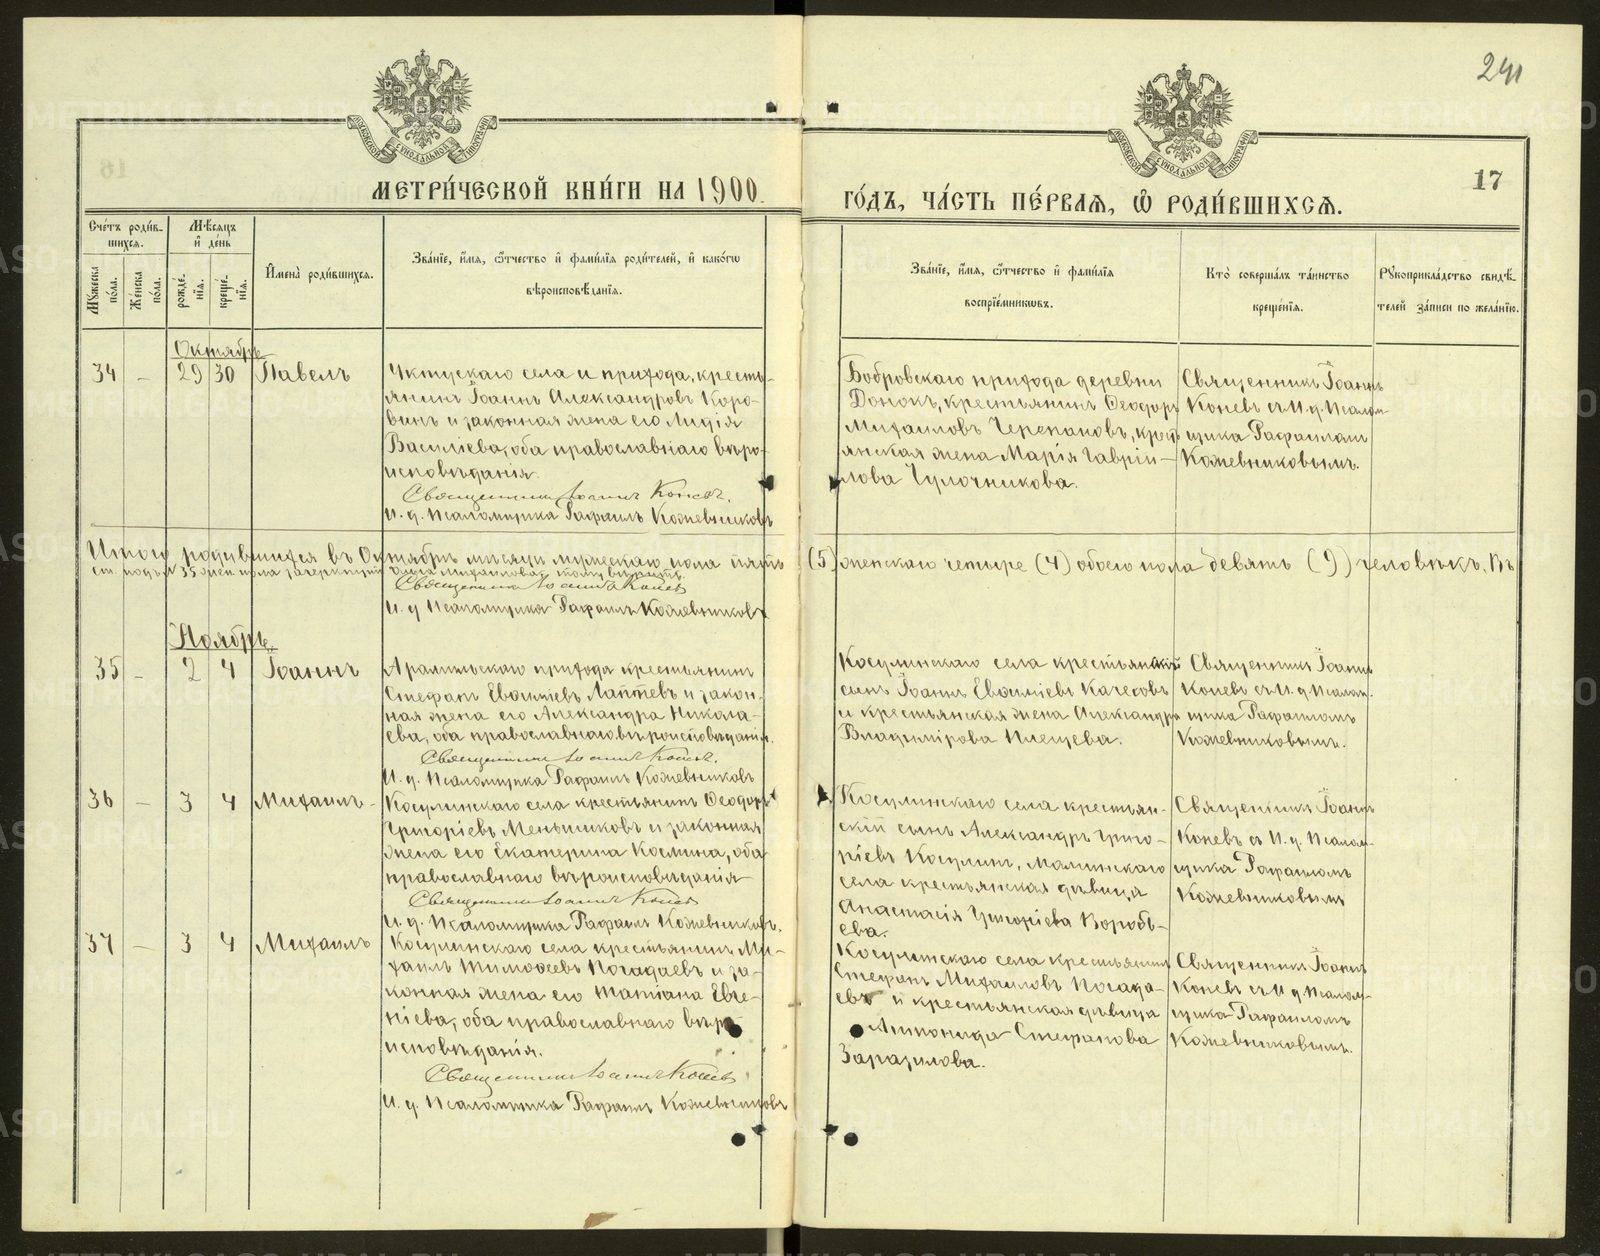 241
МЕТРИ́ЧЕСКОЙ КНИ́ГИ НА 1900
ГО́ДЪ, ЧА́СТЬ ПЕ́РВАѦ, Ѡ҆ РОДИ́ВШИХСѦ.
17
Сче́тъ роди́в-
шихсѧ.
Мѣ́сѧцъ
и҆ день
Мꙋ́жеска
по́ла.
Же́нска
по́ла.
рожде́-
нїѧ.
креще́-
нїѧ.
И҆мена̀ роди́вшихсѧ.
Зва́нїе, и҆́мѧ, ѻ҆́тчество и҆ фами́лїѧ роди́телей, и҆ како́гѡ
вѣроисповѣ́данїѧ.
Зва́нїе, и҆́мѧ, ѻ҆́тчество и҆ фами́лїѧ
воспрїе́мникѡвъ.
Кто̀ соверша́лъ та́инство
креще́нїѧ.
Рꙋкоприкла́дство свидѣ́-
телей за́писи по жела́нїю.
Октябрь
34 – 29 30 Павелъ
Уктускаго села и прихода, кресть-
янинъ Іоаннъ Александровъ Коро-
винъ и законная жена его Лидія
Василіева, оба православнаго вѣро-
исповѣданія.
Священникъ Іоаннъ Коневъ.
И. д. Псаломщика Рафаилъ Кожевниковъ
Бобровскаго прихода деревни
Донокъ, крестьянинъ Ѳеодоръ
Михаиловъ Черепановъ, крест
янская жена Марія Гаврiи-
лова Чулочникова.
Священникъ Іоаннъ
Коневъ съ И. д. Псалом-
щика Рафаиломъ
Кожевниковымъ.
Итого родившихся въ Октябрѣ мѣсяцѣ мужескаго пола пять (5) женскаго четыре (4) обоего пола девять (9) человѣкъ. Въ
Священникъ Іоаннъ Коневъ
И. д. Псаломщика Рафаилъ Кожевниковъ
Ноябрь.
35 – 2 4 Іоаннъ
Арамильскаго прихода крестьянинъ
Стефанъ Евѳиміевъ Лаптевъ и закон-
ная жена его Александра Никола-
ева, оба православнаго вѣроисповѣданія.
Священникъ Іоаннъ Коневъ.
И. д. Псаломщика Рафаилъ Кожевниковъ
Косулинскаго села крестьянскій
сынъ Іоаннъ Евѳиміевъ Качесовъ
и крестьянская жена Александра
Владимірова Плещева.
Священникъ Іоаннъ
Коневъ съ И. д. Псалом-
щика Рафаиломъ
Кожевниковымъ.
36 – 3 4 Михаилъ –
Косулинскаго села крестьянинъ Ѳеодоръ
Григоріевъ Меньшиковъ и законная
жена его Екатерина Космина, оба
православнаго вѣроисповѣданія
Священникъ Іоаннъ Коневъ
И. д. Псаломщика Рафаилъ Кожевниковъ.
Косулинскаго села крестьян-
скій сынъ Александръ Григо-
ріевъ Косулинъ, Малинскаго
села крестьянская дѣвица
Анастасія Григоріева Воробь-
ева.
Священникъ Іоаннъ
Коневъ съ И. д. Псалом-
щика Рафаиломъ
Кожевниковымъ
37 – 3 4 Михаилъ
Косулинскаго села крестьянинъ Ми-
хаилъ Тимоѳеевъ Погадаевъ и за-
конная жена его Татіана Евге-
ніева, оба православнаго вѣро-
исповѣданія.
Священникъ Іоаннъ Коневъ
И. д. Псаломщика Рафаилъ Кожевниковъ
Косулинскаго села крестьянинъ
Стефанъ Михаиловъ Погада-
евъ и крестьянская дѣвица
Антонида Стефанова
Заразилова.
Священникъ Іоаннъ
Коневъ съ И. д. Псалом-
щика Рафаиломъ
Кожевниковымъ.